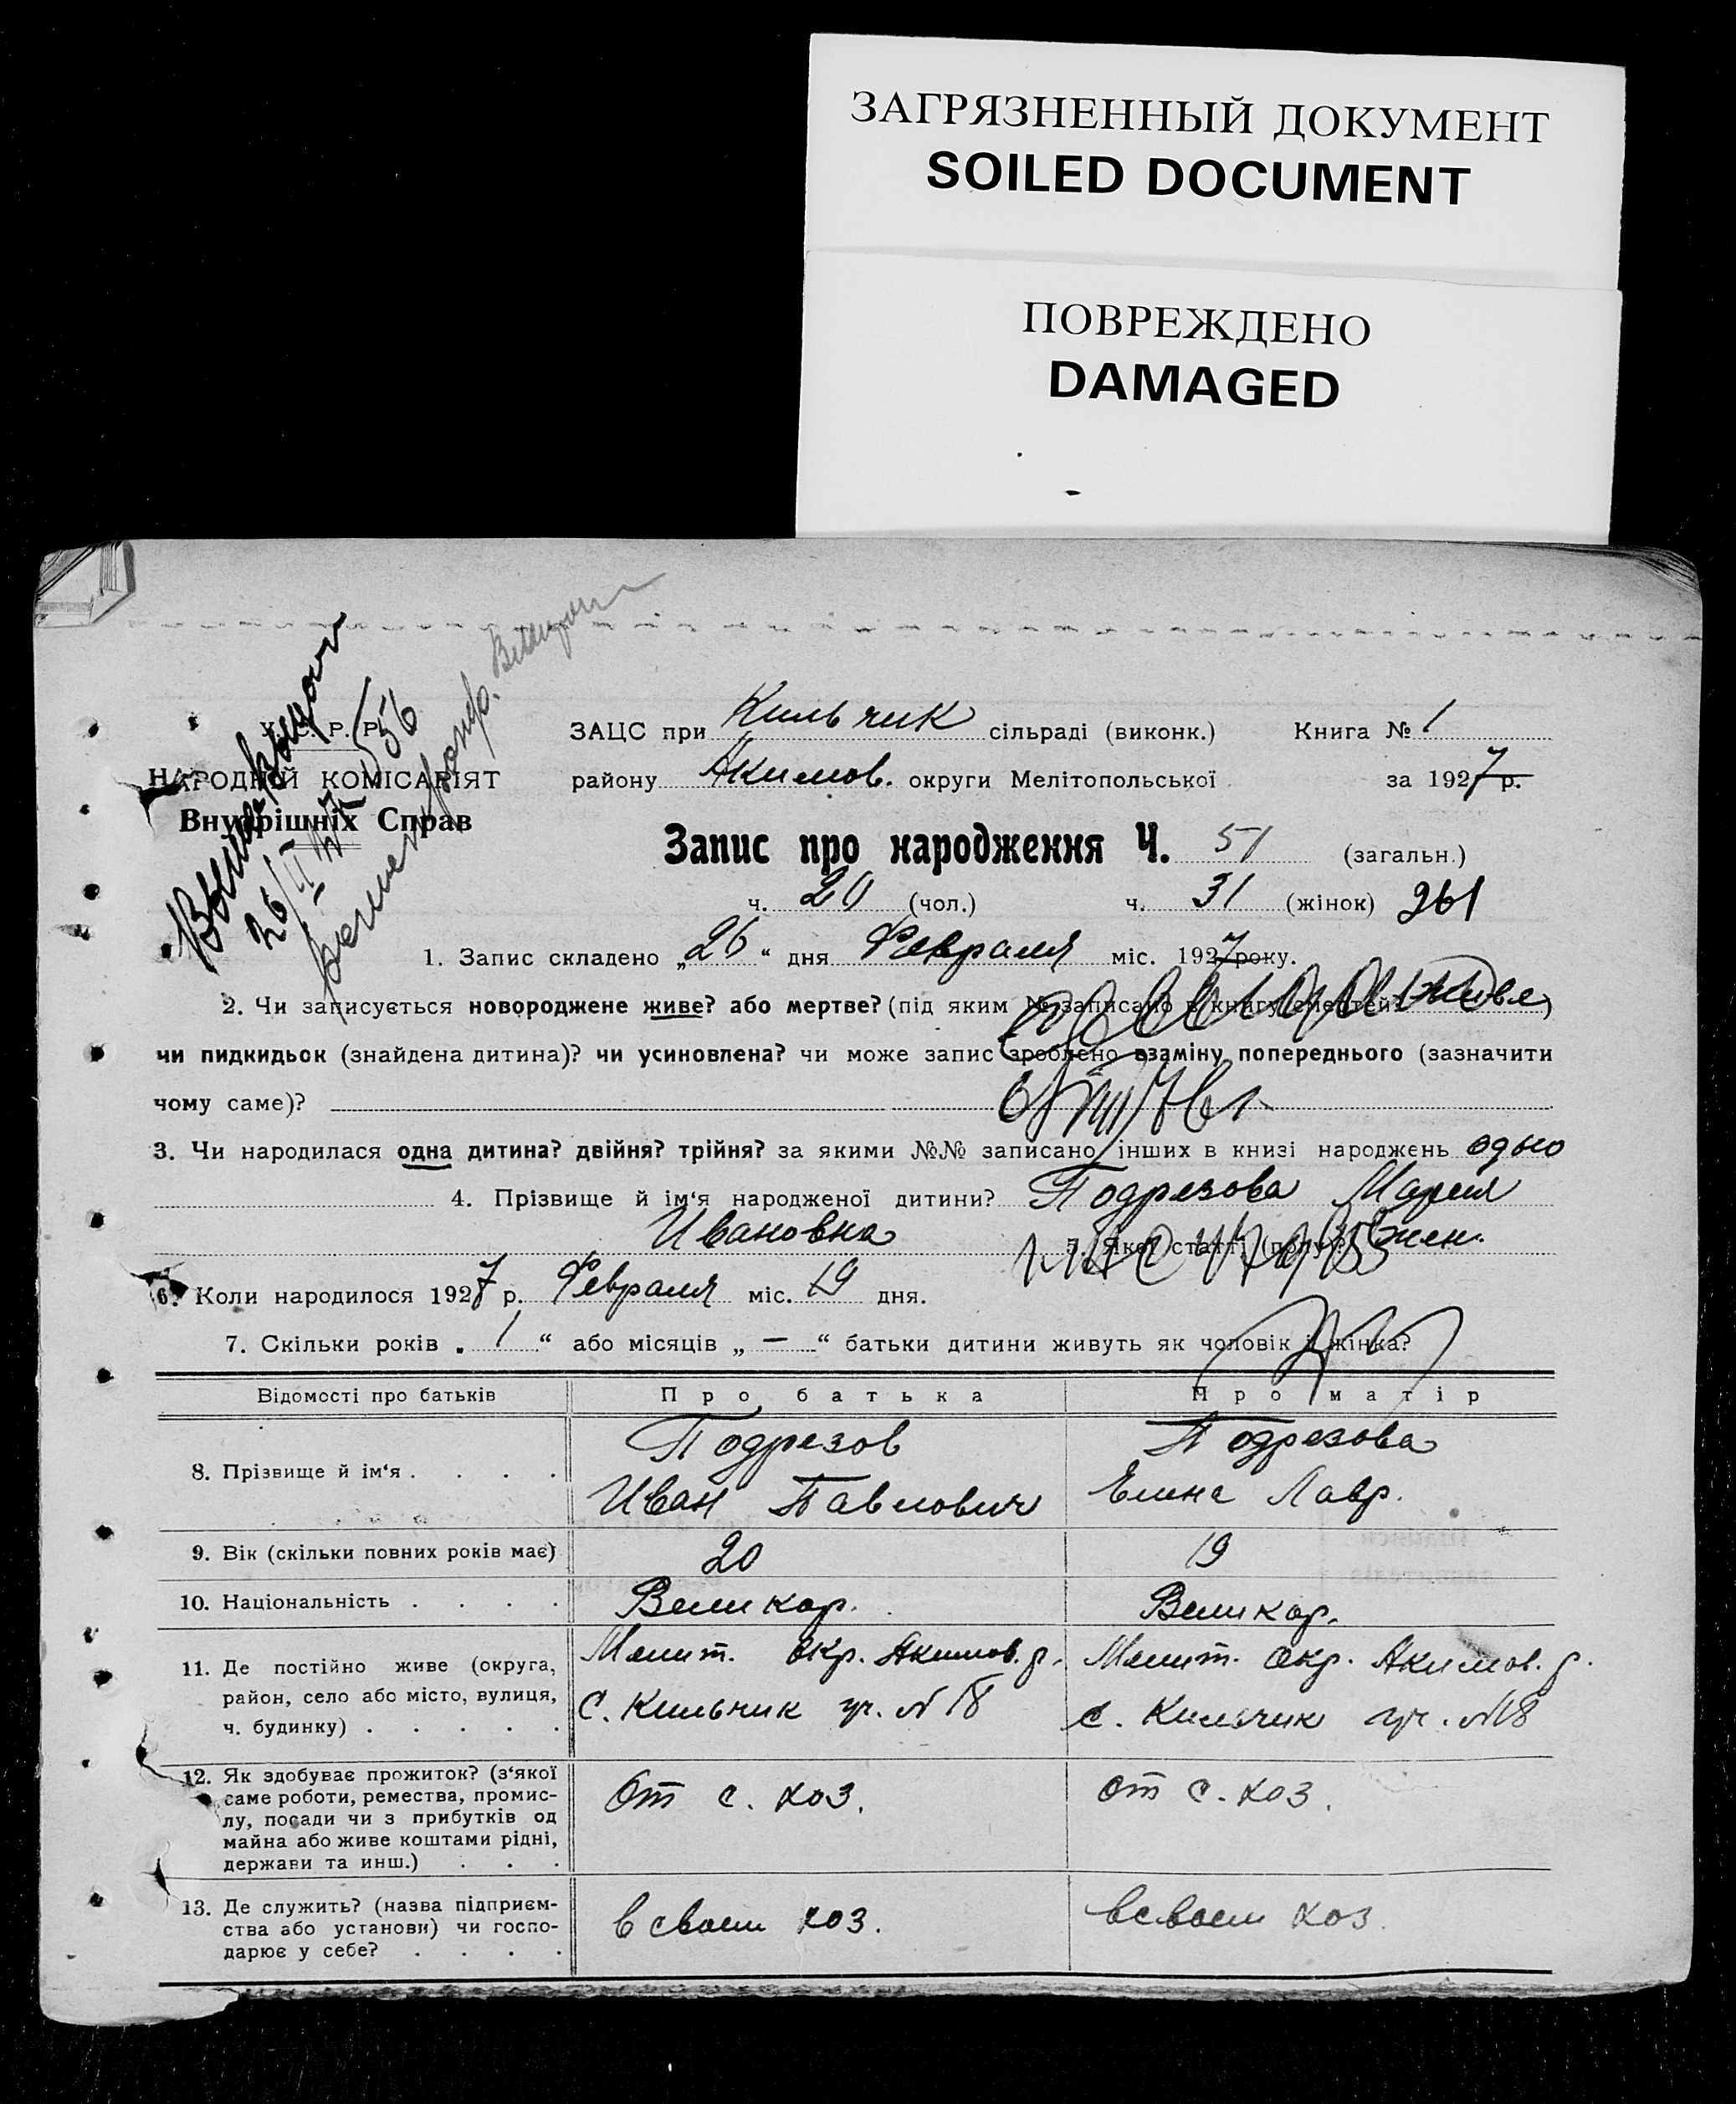 ЗАГРЯЗНЕННЫЙ ДОКУМЕНТ
SOILED DOCUMENT
ПОВРЕЖДЕНО
DAMAGED
У. С. Р. Р.
НАРОДНІЙ КОМІСАРІЯТ
Внутрішніх Справ
ЗАЦС при Кильчик сільраді (виконк.) Книга № 1
району Акимов. округи Мелітопольської за 1927 р.
Запис про народження Ч. 51 (загальн.)
ч. 20 (чол.) ч. 31 (жінок) 261
1. Запис складено „26“ дня Февраля міс. 1927 року.
2. Чи записується новороджене живе? або мертве? (під яким № записано в книгу смертей? живе)
чи пидкидьок (знайдена дитина)? чи усиновлена? чи може запис зроблено взаміну попереднього (зазначити
чому саме)?
3. Чи народилася одна дитина? двійня? трійня? за якими №№ записано інших в книзі народжень одно
4. Прізвище й ім‘я народженої дитини? Подрезова Мария
Ивановна 5. Якої статті (полу)? жен.
6. Коли народилося 1927 р. Февраля міс. 19 дня.
7. Скільки років „1“ або місяців „—“ батьки дитини живуть як чоловік і жінка?
Відомості про батьків Про батька Про матір
8. Прізвище й ім‘я . . . . Подрезов Подрезова
Иван Павлович Елена Лавр.
9. Вік (скільки повних років має) 20 19
10. Національність . . . . Великор. Великор.
11. Де постійно живе (округа, Мелит. окр. Акимов. р. Мелит. окр. Акимов. р.
район, село або місто, вулиця, С. Кильчик уч. N 18 с. Кильчик уч. N 18
ч. будинку) . . . . .
12. Як здобуває прожиток? (з‘якої
саме роботи, ремества, промис- От с. хоз. от с. хоз.
лу, посади чи з прибутків од
майна або живе коштами рідні,
держави та инш.) . . .
13. Де служить? (назва підприєм-
ства або установи) чи госпо- в своем хоз. в своем хоз.
дарює у себе? . . . .